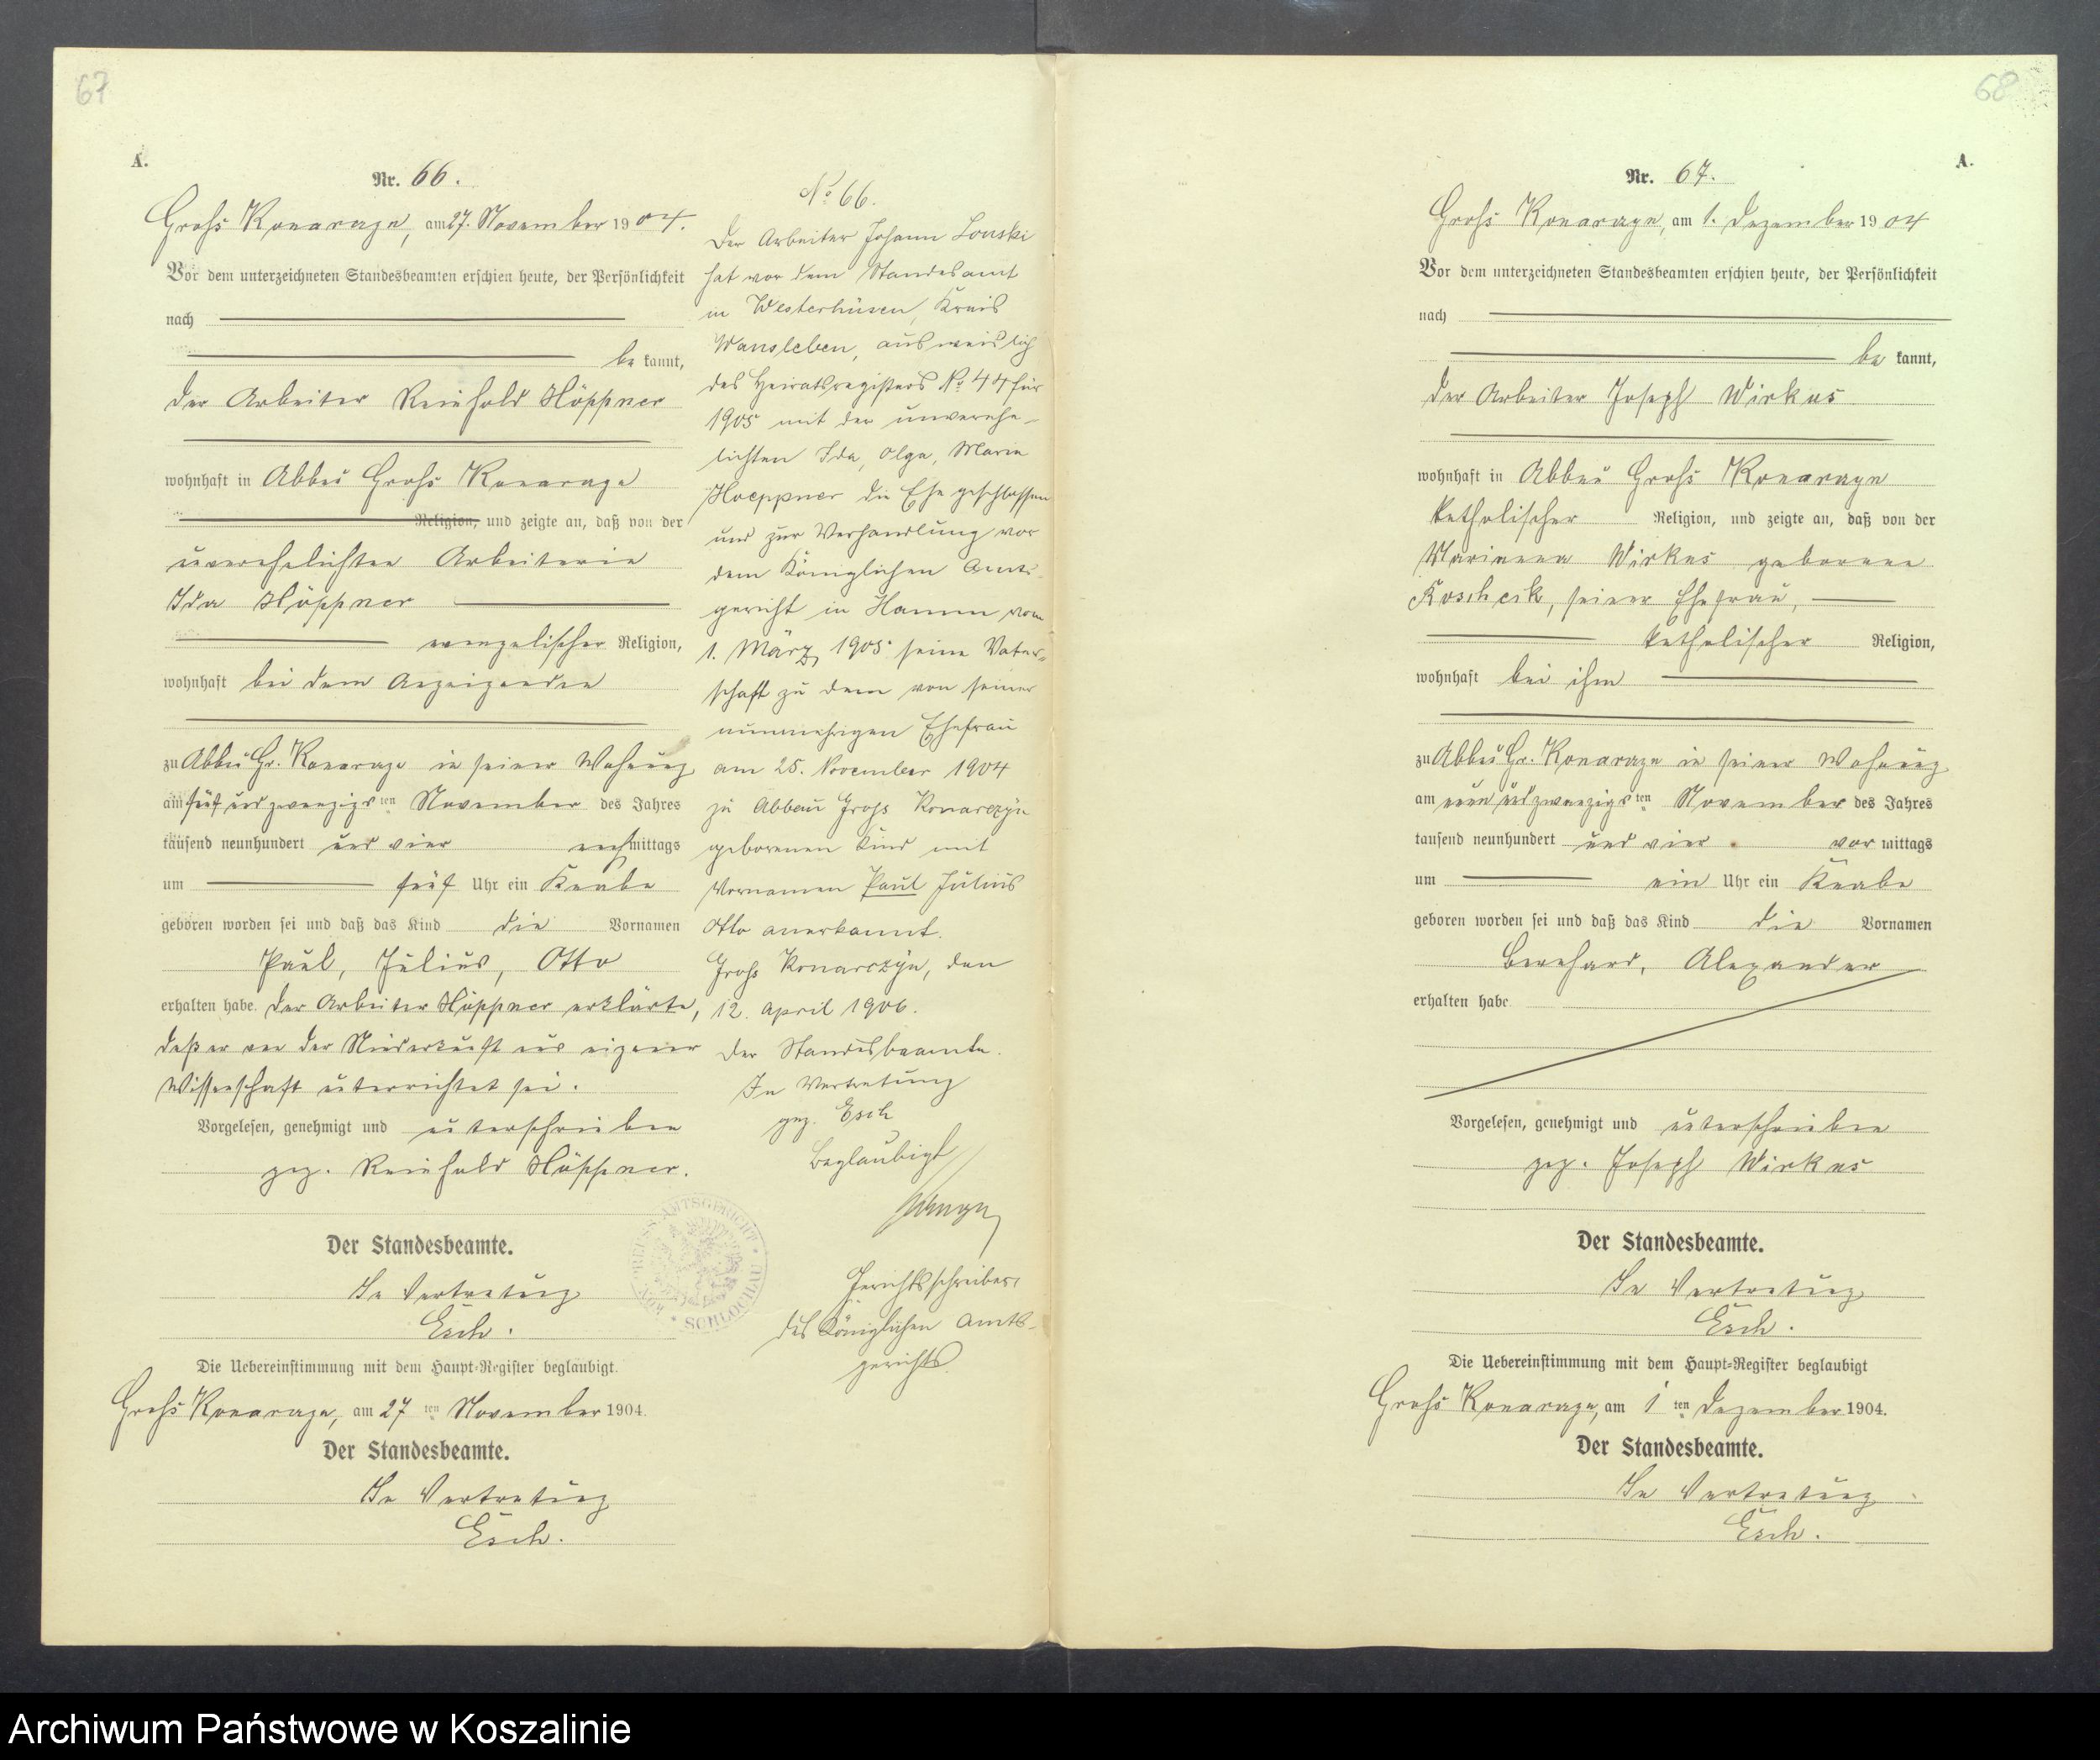 67
A.
Nr. 66.
Groß Konarczyn, am 27. November 1904.
Vor dem unterzeichneten Standesbeamten erschien heute, der Persönlichkeit
nach
be kannt,
der Arbeiter Reinhold Höppner
wohnhaft in Abbau Groß Konarczyn
Religion, und zeigte an, daß von der
unverehelichten Arbeiterin
Ida Höppner
evangelischer Religion,
wohnhaft bei dem Anzeigenden
zu Abbau Gr. Konarczyn in seiner Wohnung
am fünf und zwanzigsten November des Jahres
tausend neunhundert und vier nachmittags
um fünf Uhr ein Knabe
geboren worden sei und daß das Kind die Vornamen
Paul, Julius, Otto
erhalten habe. Der Arbeiter Höppner erklärte,
daß er von der Niederkunft aus eigener
Wissenschaft unterrichtet sei.
Vorgelesen, genehmigt und unterschrieben
gez. Reinhold Höppner.
Der Standesbeamte.
In Vertretung
Esch.
Die Uebereinstimmung mit dem Haupt-Register beglaubigt.
Groß Konarczyn, am 27ten November 1904.
Der Standesbeamte.
In Vertretung
Esch.
No 66.
Der Arbeiter Johann Lonski
hat vor dem Standesamt
in Westerhüsen, Kreis
Wansleben, ausweislich
des Heiratsregisters No 44 für
1905 mit der unverehe-
lichten Ida, Olga, Marie
Hoeppner die Ehe geschlossen
und zur Verhandlung vor
dem Königlichen Amts-
gericht in Hamm vom
1. März 1905 seine Vater-
schaft zu dem von seiner
nunmehrigen Ehefrau
am 25. November 1904
zu Abbau Groß Konarczyn
geborenen Kind mit
Vornamen Paul Julius
Otto anerkannt.
Groß Konarczyn, den
12. April 1906.
Der Standesbeamte.
In Vertretung
gez. Esch
Beglaubigt
Gerichtsschreiber
des Königlichen Amts-
gerichts.
KÖN. PREUSS. AMTSGERICHT * SCHLOCHAU *
68
A.
Nr. 67.
Groß Konarczyn, am 1. Dezember 1904
Vor dem unterzeichneten Standesbeamten erschien heute, der Persönlichkeit
nach
be kannt,
der Arbeiter Joseph Wirkus
wohnhaft in Abbau Groß Konarczyn
katholischer Religion, und zeigte an, daß von der
Marianna Wirkus geborene
Koschcik, seiner Ehefrau,
katholischer Religion,
wohnhaft bei ihm
zu Abbau Gr. Konarczyn in seiner Wohnung
am neun und zwanzigsten November des Jahres
tausend neunhundert und vier vor mittags
um ein Uhr ein Knabe
geboren worden sei und daß das Kind die Vornamen
Bernhard, Alexander
erhalten habe.
Vorgelesen, genehmigt und unterschrieben
gez. Joseph Wirkus
Der Standesbeamte.
In Vertretung
Esch.
Die Uebereinstimmung mit dem Haupt-Register beglaubigt
Groß Konarczyn, am 1ten Dezember 1904.
Der Standesbeamte.
In Vertretung
Esch.
Archiwum Państwowe w Koszalinie